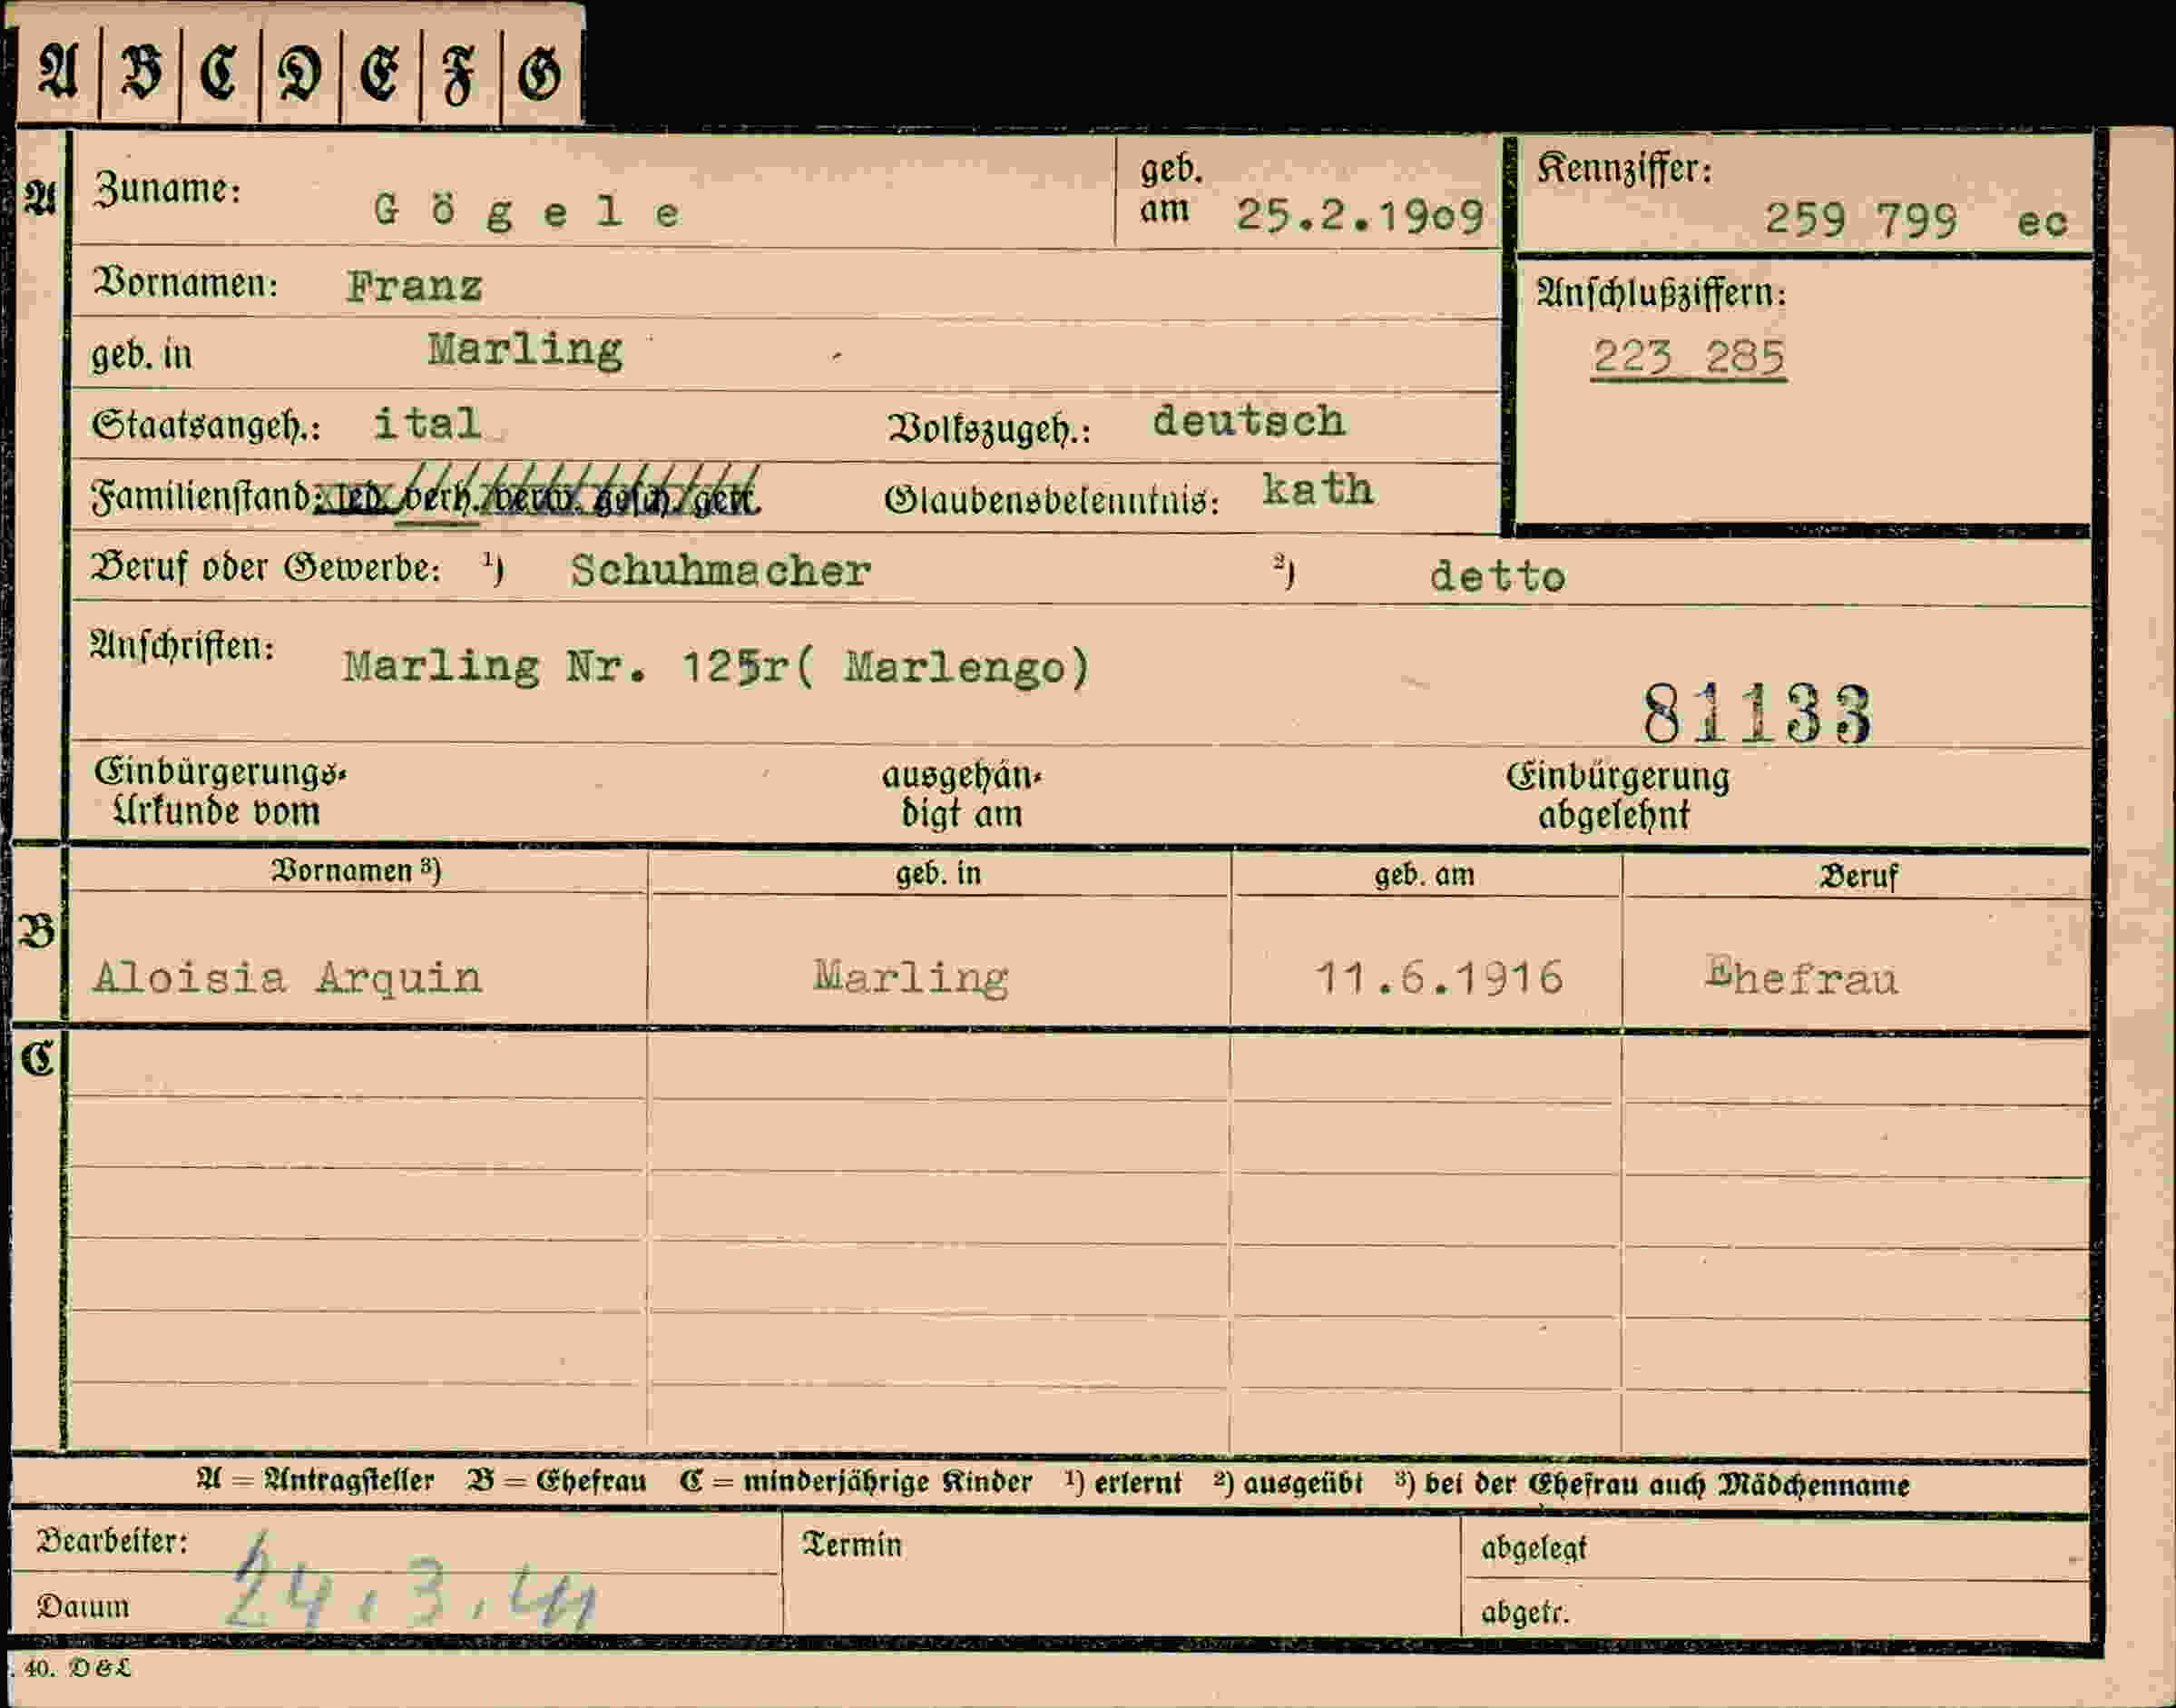 A B C D E F G
A Zuname: Gögele geb. am 25.2.1909 Kennziffer: 259 799 ec
Vornamen: Franz Anschlußziffern:
geb. in Marling 223 285
Staatsangeh.: ital Volkszugeh.: deutsch
Familienstand: led. verh. verw. gesch. getr. Glaubensbekenntnis: kath
Beruf oder Gewerbe: ¹) Schuhmacher ²) detto
Anschriften: Marling Nr. 125r( Marlengo)
81133
Einbürgerungs- ausgehän- Einbürgerung
Urkunde vom digt am abgelehnt
Vornamen ³) geb. in geb. am Beruf
B Aloisia Arquin Marling 11.6.1916 Ehefrau
C
A = Antragsteller B = Ehefrau C = minderjährige Kinder ¹) erlernt ²) ausgeübt ³) bei der Ehefrau auch Mädchenname
Bearbeiter: Termin abgelegt
Datum 24.3. abgetr.
40. D&L